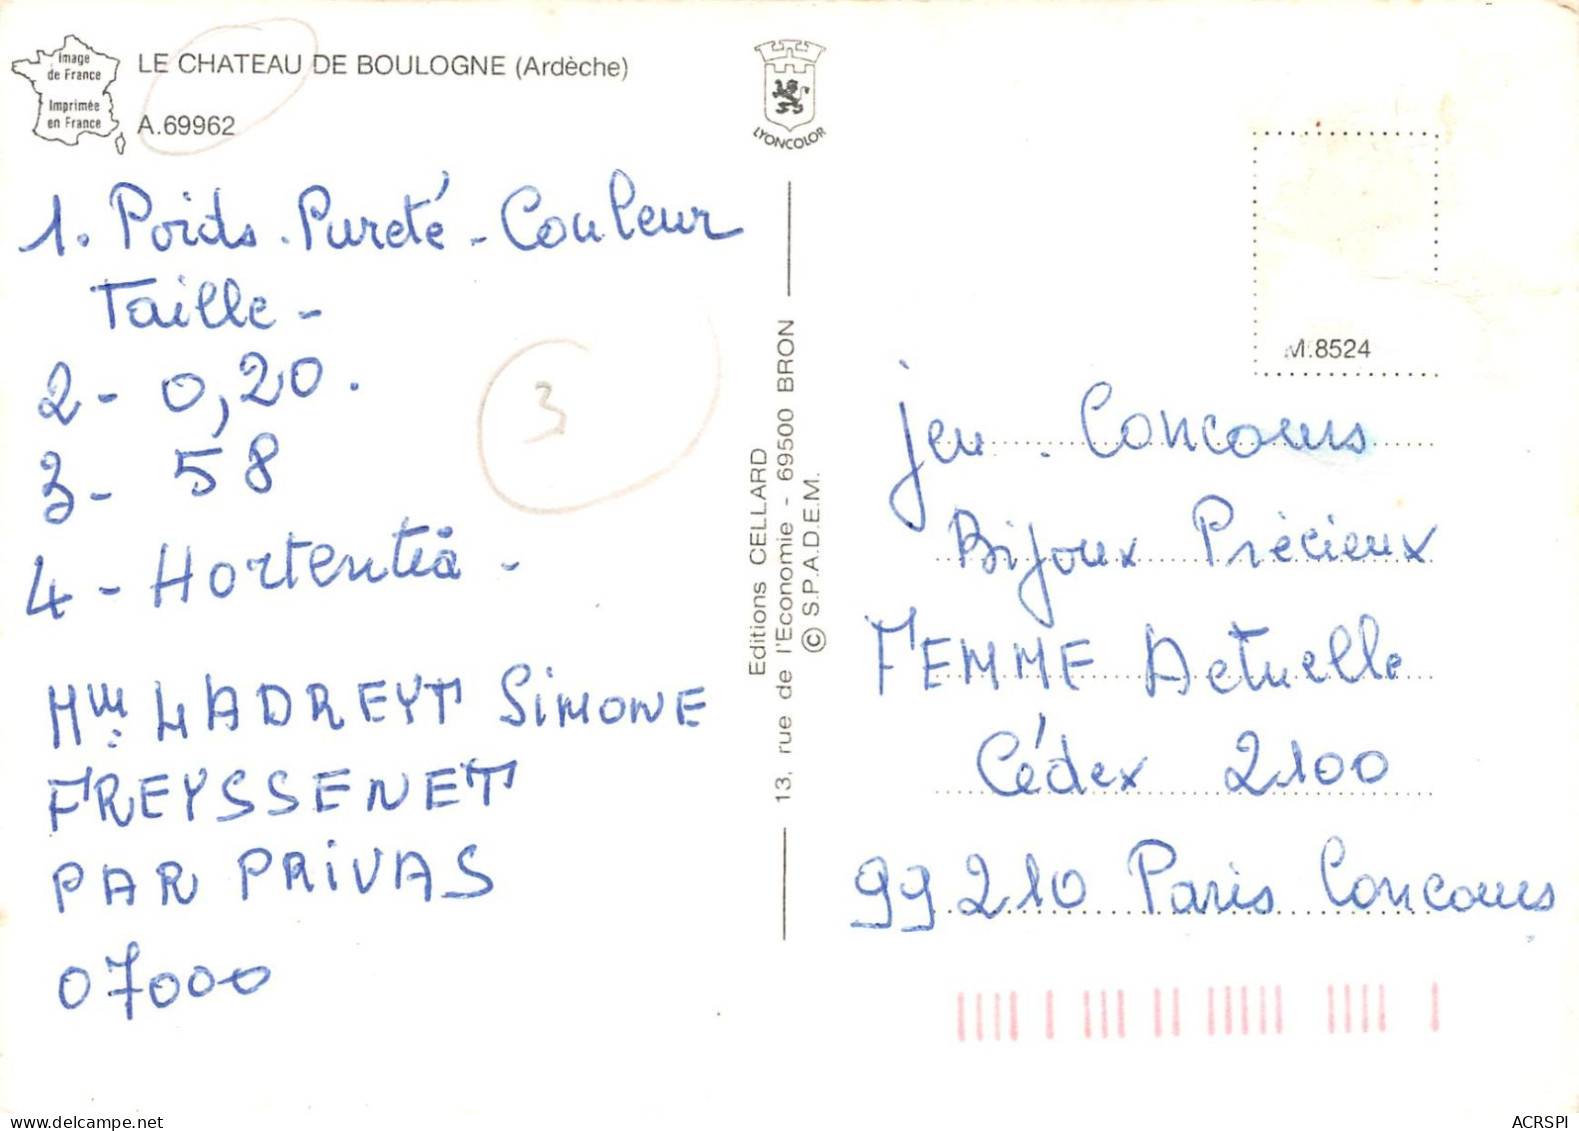 Image
de France
Imprimée
en France
LE CHATEAU DE BOULOGNE (Ardèche)
A.69962
LYONCOLOR
1. Poids - Pureté - Couleur
Taille -
2 - 0,20.
3 - 58
4 - Hortentia -
Mme LADREYT Simone
FREYSSENET
PAR PRIVAS
07000
3
Editions CELLARD
13, rue de l'Economie - 69500 BRON
© S.P.A.D.E.M.
M.8524
jeu. Concours
Bijoux Précieux
FEMME Actuelle
Cédex 2100
99210 Paris Concours
ACRSPI